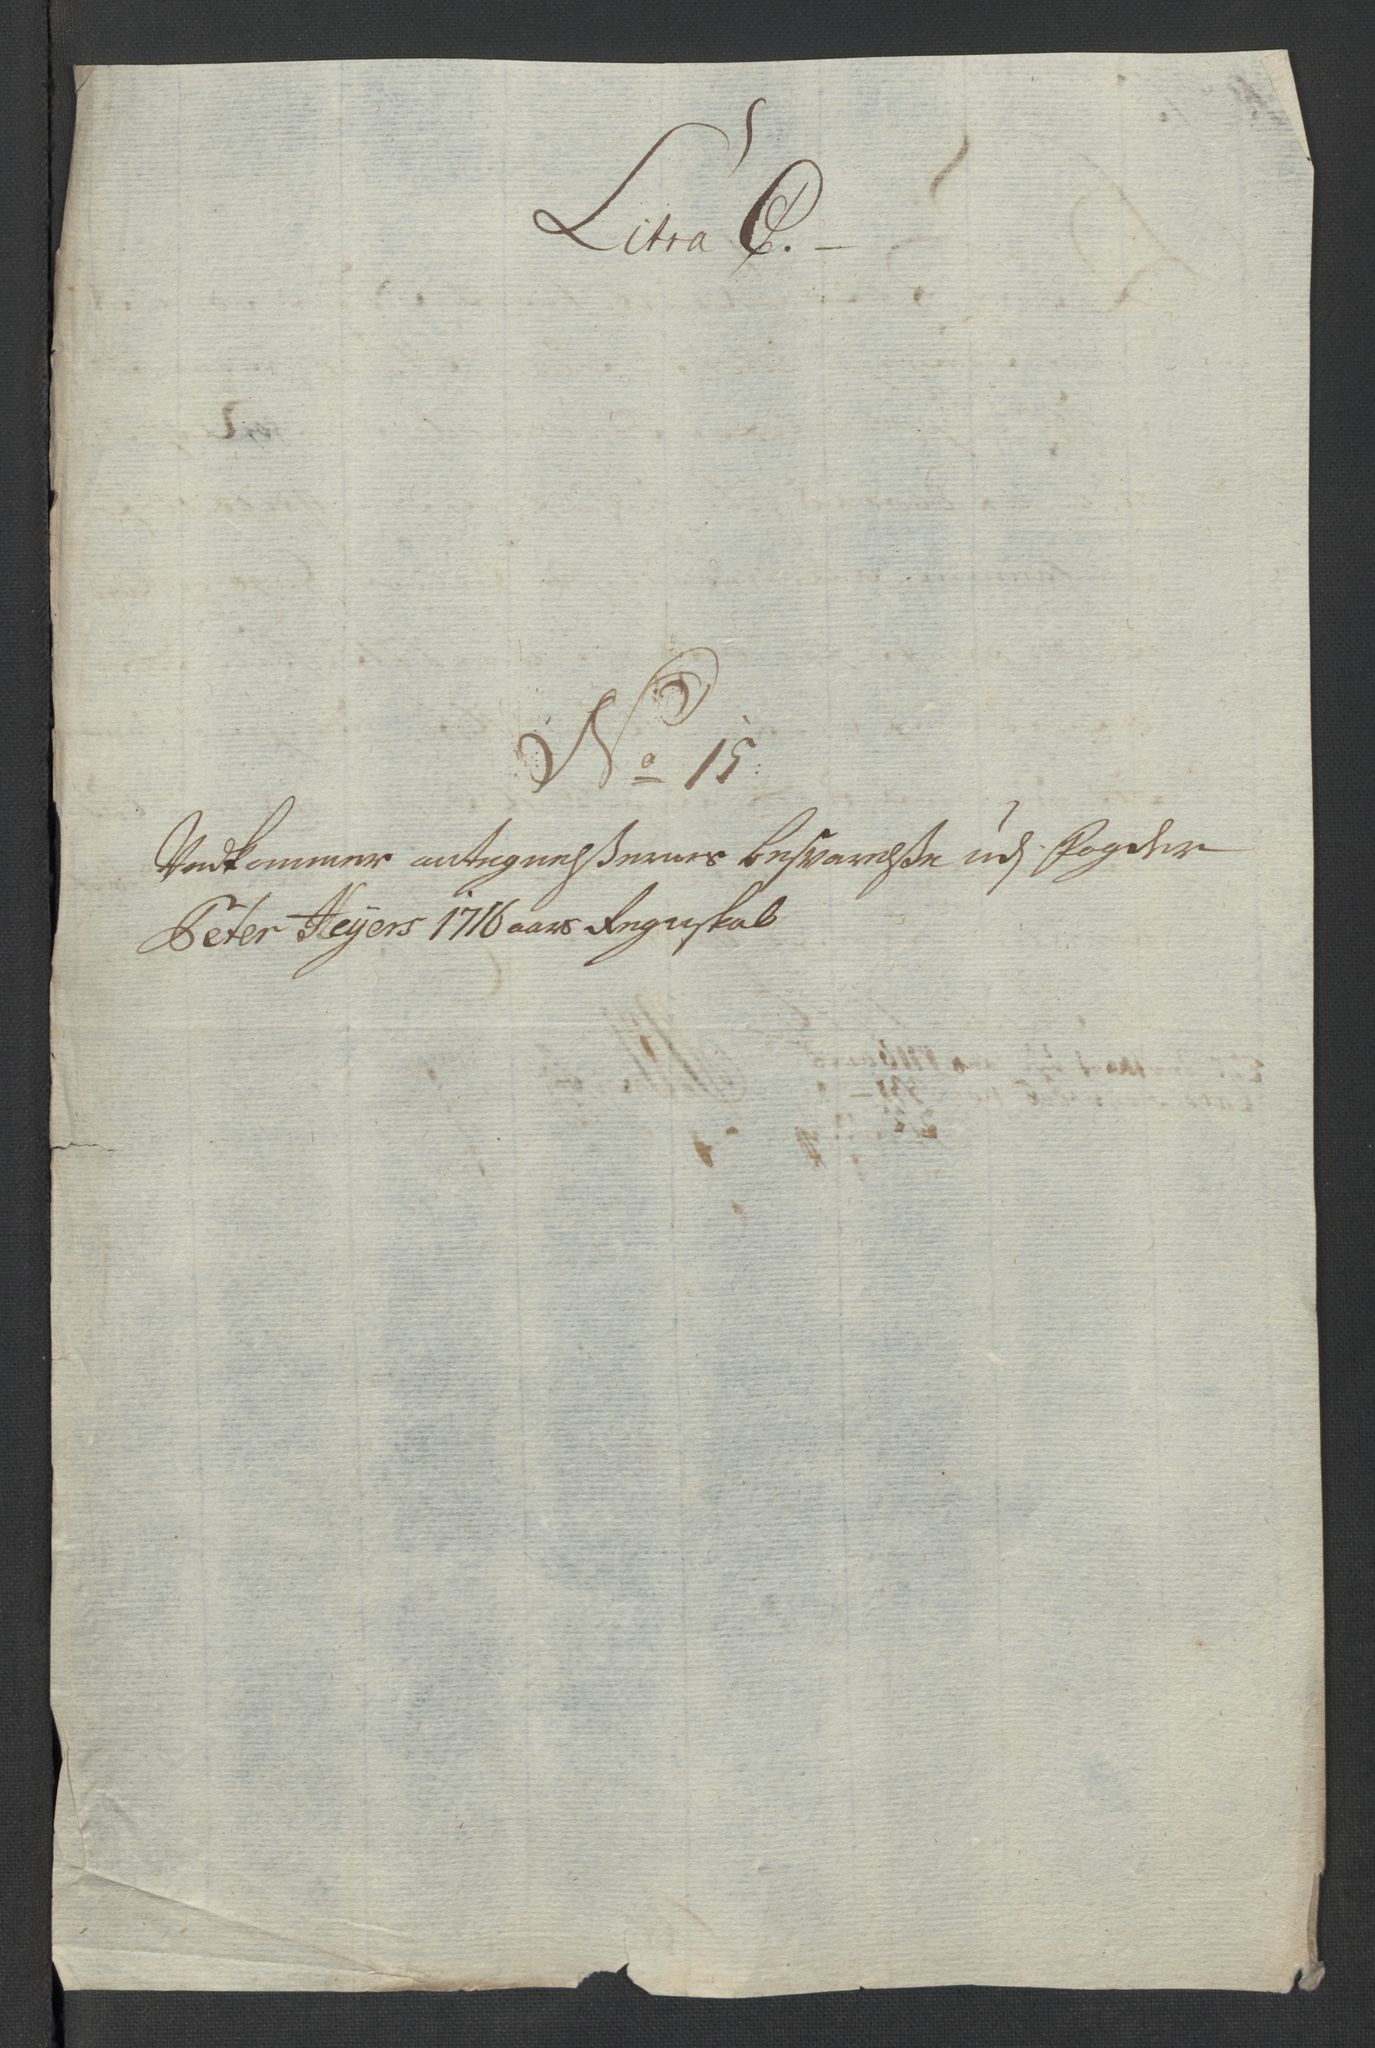 Litra C. –
No 15
Vedkommer antegnelsernes besvarelse udj Fogden
Peter Heyers 1716 aars Regnskab